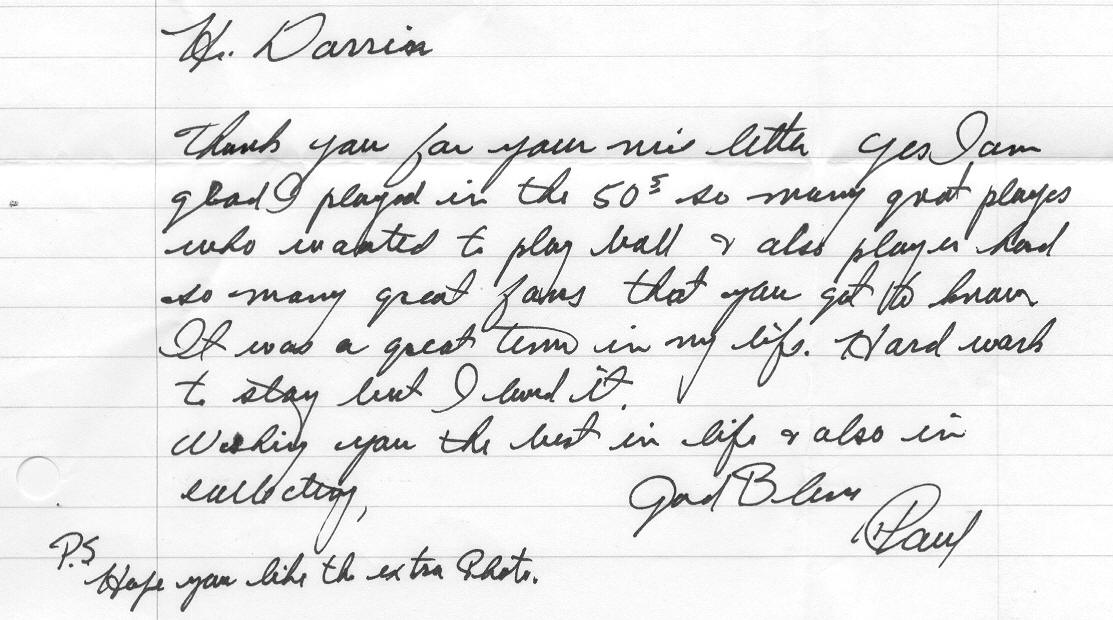 Hi. Darrin
Thank you for your nice letter Yes I am
glad I played in the 50s so many great players
who wanted to play ball & also player had
so many great fans that you got to know
It was a great time in my life. Hard work
to stay but I loved it.
Wishing you the best in life & also in
collecting,
God Bless
Paul
P.S
Hope you like the extra Photo.